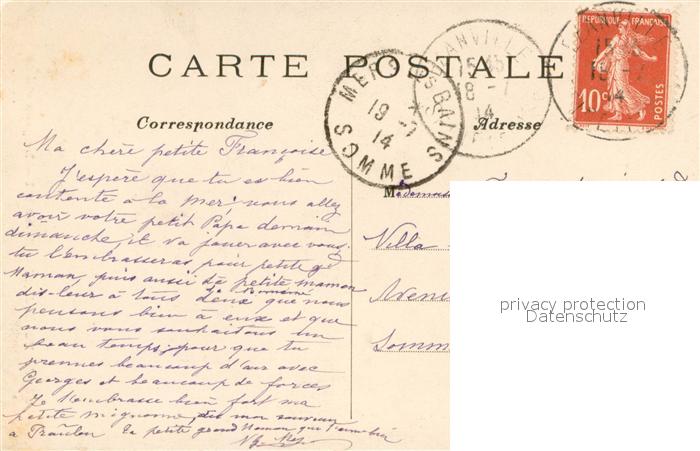 CARTE POSTALE
Correspondance
Adresse
REPUBLIQUE FRANÇAISE
10c
POSTES
MERS LES BAINS
19 - 7
14
SOMME
15
18 - 7
14
Ma chère petite Françoise
J'espère que tu es bien
contente à la mer, vous allez
avoir votre petit Papa demain
dimanche, il va jouer avec vous
tu l'embrasseras pour petite gd
Maman, puis aussi ta petite maman
dis-leur à tous deux que nous
pensons bien à eux et que
nous vous souhaitons un
beau temps, pour que tu
prennes beaucoup d'air avec
Georges et beaucoup de forces
Je t'embrasse bien fort ma
petite mignonne, dis mon souvenir
à
ta petite grand Maman qui t'aime bien
Mademois
Villa
Avenu
Somm
privacy protection
Datenschutz